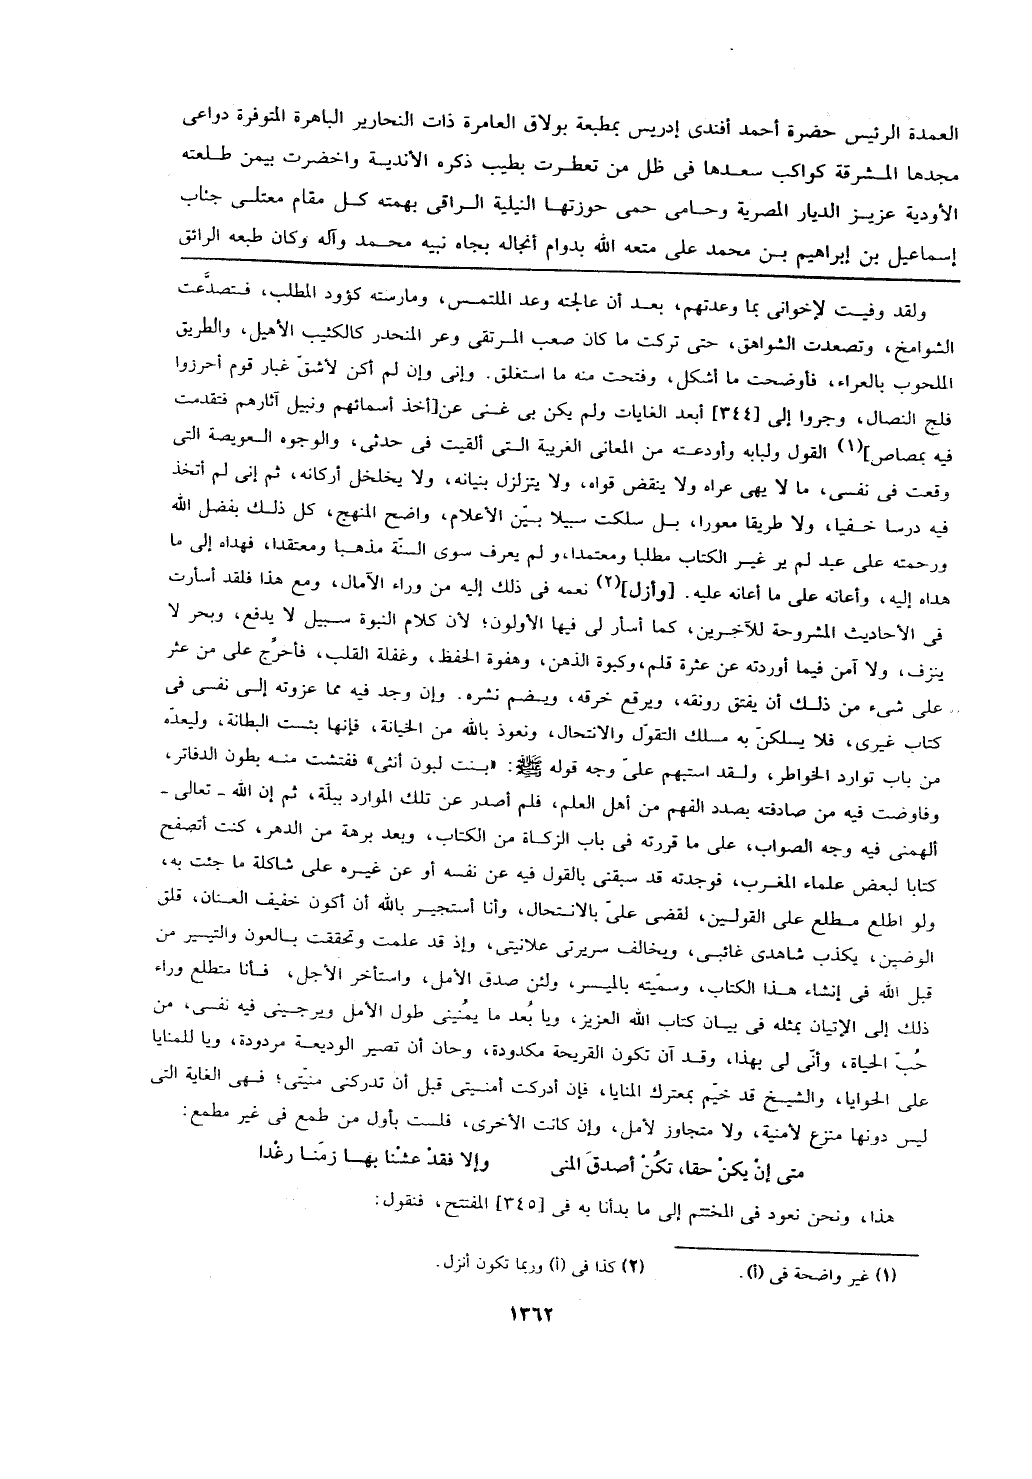 العمدة الرئيس حضرة أحمد أفندى إدريس بمطبعة بولاق العامرة ذات النحارير الباهرة المتوفرة دواعى
مجدها المشرقة كواكب سعدها فى ظل من تعطرت بطيب ذكره الأندية واخضرت بيمن طلعته
الأودية عزيز الديار المصرية وحامى حمى حوزتها النيلية الراقى بهمته كل مقام معتلى جناب
إسماعيل بن إبراهيم بن محمد على متعه الله بدوام أنجاله بجاه نبيه محمد وآله وكان طبعه الرائق
ولقد وفيت لإخوانى بما وعدتهم، بعد أن عالجته وعد الملتمس، ومارسته كؤود المطلب، فتصدَّعت
الشوامخ، وتصعدت الشواهق، حتى تركت ما كان صعب المرتقى وعر المنحدر كالكثيب الأهيل، والطريق
الملحوب بالعراء، فأوضحت ما أشكل، وفتحت منه ما استغلق. وإنى وإن لم أكن لأشقّ غبار قوم أحرزوا
فلج النصال، وجروا إلى [٣٤٤] أبعد الغايات ولم يكن بى غنى عن[أخذ أسمائهم ونبيل آثارهم فتقدمت
فيه بمصاص](١) القول ولبابه وأودعته من المعانى الغريبة التى ألقيت فى حدثى، والوجوه العويصة التى
وقعت فى نفسى، ما لا يهى عراه ولا ينقض قواه، ولا يتزلزل بنيانه، ولا يخلخل أركانه، ثم إنى لم أتخذ
فيه درسا خفيا، ولا طريقا معورا، بل سلكت سبيلا بيّن الأعلام، واضح المنهج، كل ذلك بفضل الله
ورحمته على عبد لم ير غير الكتاب مطلبا ومعتمدا، و لم يعرف سوى السنّة مذهبا ومعتقدا، فهداه إلى ما
هداه إليه، وأعانه على ما أعانه عليه. [وأزل](٢) نعمه فى ذلك إليه من وراء الآمال، ومع هذا فلقد أسأرت
فى الأحاديث المشروحة للآخرين، كما أسأر لى فيها الأولون؛ لأن كلام النبوة سبيل لا يدفع، وبحر لا
ينزف، ولا آمن فيما أوردته عن عثرة قلم، وكبوة الذهن، وهفوة الحفظ، وغفلة القلب، فأحرُّج على من عثر
على شىء من ذلك أن يفتق رونقه، ويرقع خرقه، ويضم نشره. وإن وجد فيه مما عزوته إلى نفسى فى
كتاب غيرى، فلا يسلكنّ به مسلك التقوّل والانتحال، ونعوذ بالله من الخيانة، فإنها بئست البطانة، وليعدّه
من باب توارد الخواطر، ولقد استبهم علىّ وجه قوله ﷺ: «بنت لبون أنثى» ففتشت منه بطون الدفاتر،
وفاوضت فيه من صادفته بصدد الفهم من أهل العلم، فلم أصدر عن تلك الموارد ببلّة، ثم إن الله ـ تعالى ـ
ألهمنى فيه وجه الصواب، على ما قررته فى باب الزكاة من الكتاب، وبعد برهة من الدهر، كنت أتصفح
كتابا لبعض علماء المغرب، فوجدته قد سبقنى بالقول فيه عن نفسه أو عن غيره على شاكلة ما جئت به،
ولو اطلع مطلع على القولين، لقضى علىّ بالانتحال، وأنا أستجير بالله أن أكون خفيف العنان، قلق
الوضين، يكذب شاهدى غائبى، ويخالف سريرتى علانيتى، وإذ قد علمت وتحققت بالعون والتيسير من
قبل الله فى إنشاء هذا الكتاب، وسمّيته بالميسر، ولئن صدق الأمل، واستأخر الأجل، فأنا متطلع وراء
ذلك إلى الإتيان بمثله فى بيان كتاب الله العزيز، ويا بُعد ما يمُنينى طول الأمل ويرجينى فيه نفسى، من
حُبّ الحياة، وأنّى لى بهذا، وقد آن تكون القريحة مكدودة، وحان أن تصير الوديعة مردودة، ويا للمنايا
على الحوايا، والشيخ قد خيّم بمعترك المنايا، فإن أدركت أمنيتى قبل أن تدركنى منيّتى؛ فهى الغاية التى
ليس دونها منزع لأمنية، ولا متجاوز لأمل، وإن كانت الأخرى، فلست بأول من طمع فى غير مطمع:
متى إنْ يكنْ حقا، تكُنْ أصدقَ المنى وإلا فقدْ عشْنا بها زمَنا رغْدا
هذا، ونحن نعود فى المختتم إلى ما بدأنا به فى [٣٤٥] المفتتح، فنقول:
(١) غير واضحة فى (أ). (٢) كذا فى (أ) وربما تكون أنزل.
١٣٦٢